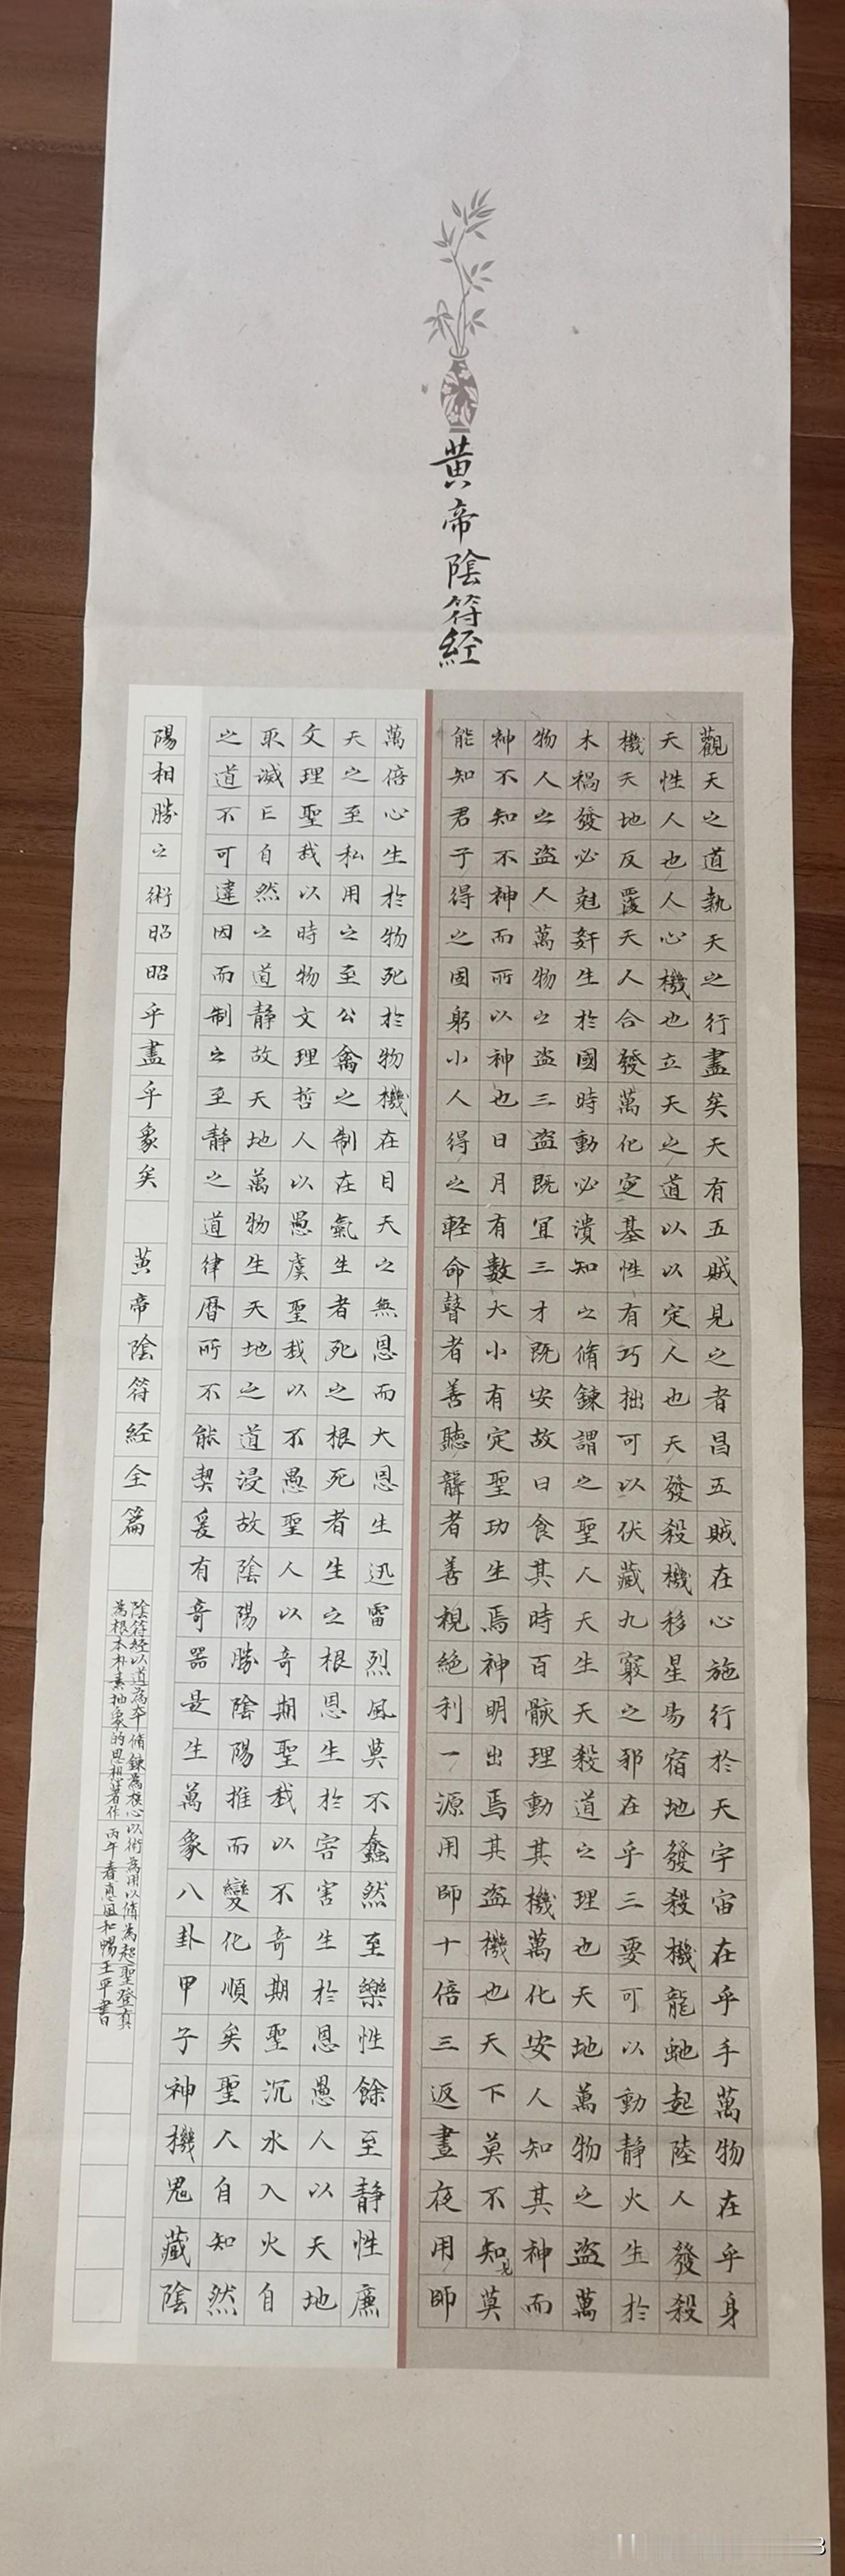 黄帝陰符経
觀天之道執天之行盡矣天有五賊見之者昌五賊在心施行於天宇宙在乎手萬物在乎身
天性人也人心機也立天之道以以定人也天發殺機移星易宿地發殺機龍虵起陸人發殺
機天地反覆天人合發萬化定基性有巧拙可以伏藏九竅之邪在乎三要可以動静火生於
木禍發必尅奸生於國時動必潰知之脩鍊謂之聖人天生天殺道之理也天地萬物之盜萬
物人之盜人萬物之盜三盜既宜三才既安故曰食其時百骸理動其機萬化安人知其神而
神不知不神而所以神也日月有數大小有定聖功生焉神明出焉其盜機也天下莫不知見莫
能知君子得之固躬小人得之輕命瞽者善聽聾者善視絶利一源用師十倍三返晝夜用師
萬倍心生於物死於物機在目天之無恩而大恩生迅雷烈風莫不蠢然至樂性餘至静性廉
天之至私用之至公禽之制在氣生者死之根死者生之根恩生於害害生於恩愚人以天地
文理聖我以時物文理哲人以愚虞聖我以不愚聖人以奇期聖我以不奇期聖沉水入火自
取滅亡自然之道静故天地萬物生天地之道浸故陰陽勝陰陽推而變化順矣聖人自知然
之道不可違因而制之至静之道律暦所不能契爰有奇器是生萬象八卦甲子神機鬼藏陰
陽相勝之術昭昭乎盡乎象矣 黄帝陰符經全篇
陰符経以道為本脩鍊為核心以術為用以脩為起聖登真
為根本朴素抽象的思想著作 丙午春惠風和暢王平書